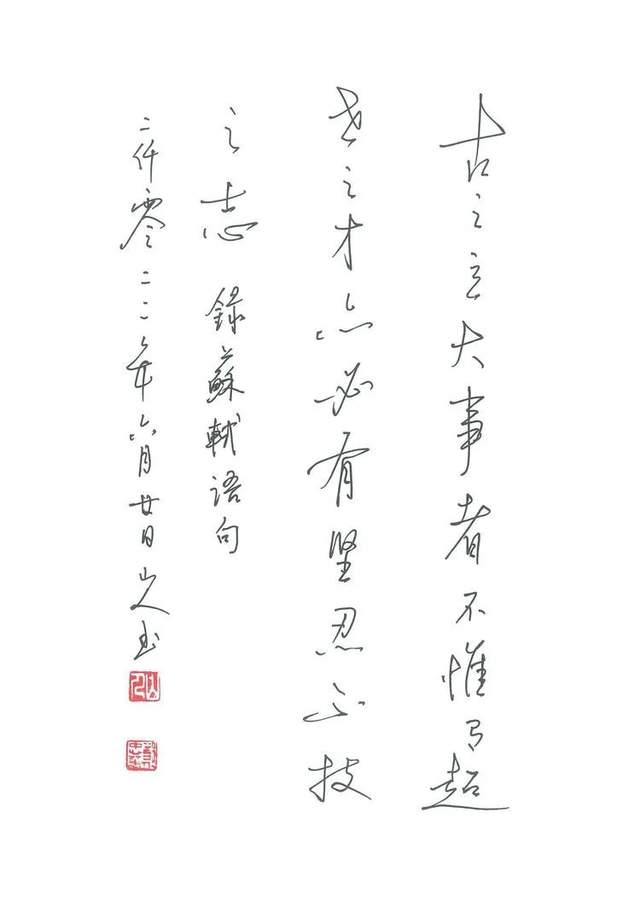 古之立大事者不惟有超
世之才亦必有坚忍不拔
之志 錄蘇軾语句
二仟零二二年六月廿日山人书